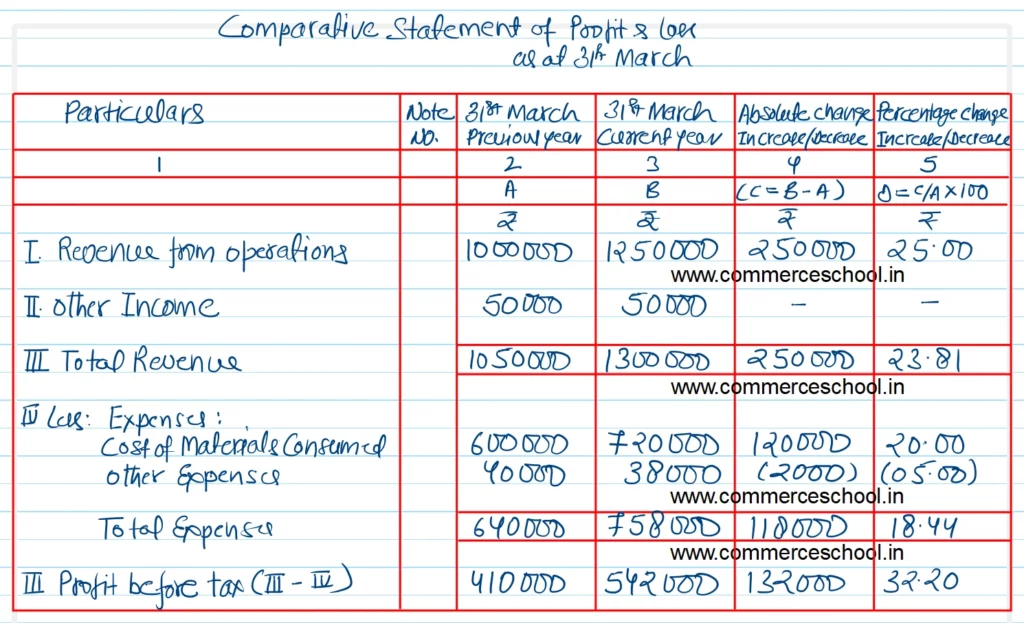 Comparative Statement of Profit & Loss
as at 31st March
Particulars Note No. 31st March Previous year 31st March Current year Absolute change Increase/Decrease Percentage change Increase/Decrease
1 2 3 4 5
A B (C=B-A) D=C/A×100
₹ ₹ ₹ ₹
I. Revenue from operations 1000000 1250000 250000 25.00
www.commerceschool.in
II. other Income 50000 50000 — —
III Total Revenue 1050000 1300000 250000 23.81
www.commerceschool.in
IV Less: Expenses:
Cost of Materials Consumed 600000 720000 120000 20.00
other Expenses 40000 38000 (2000) (05.00)
www.commerceschool.in
Total Expenses 640000 758000 118000 18.44
www.commerceschool.in
III Profit before tax (III - IV) 410000 542000 132000 32.20